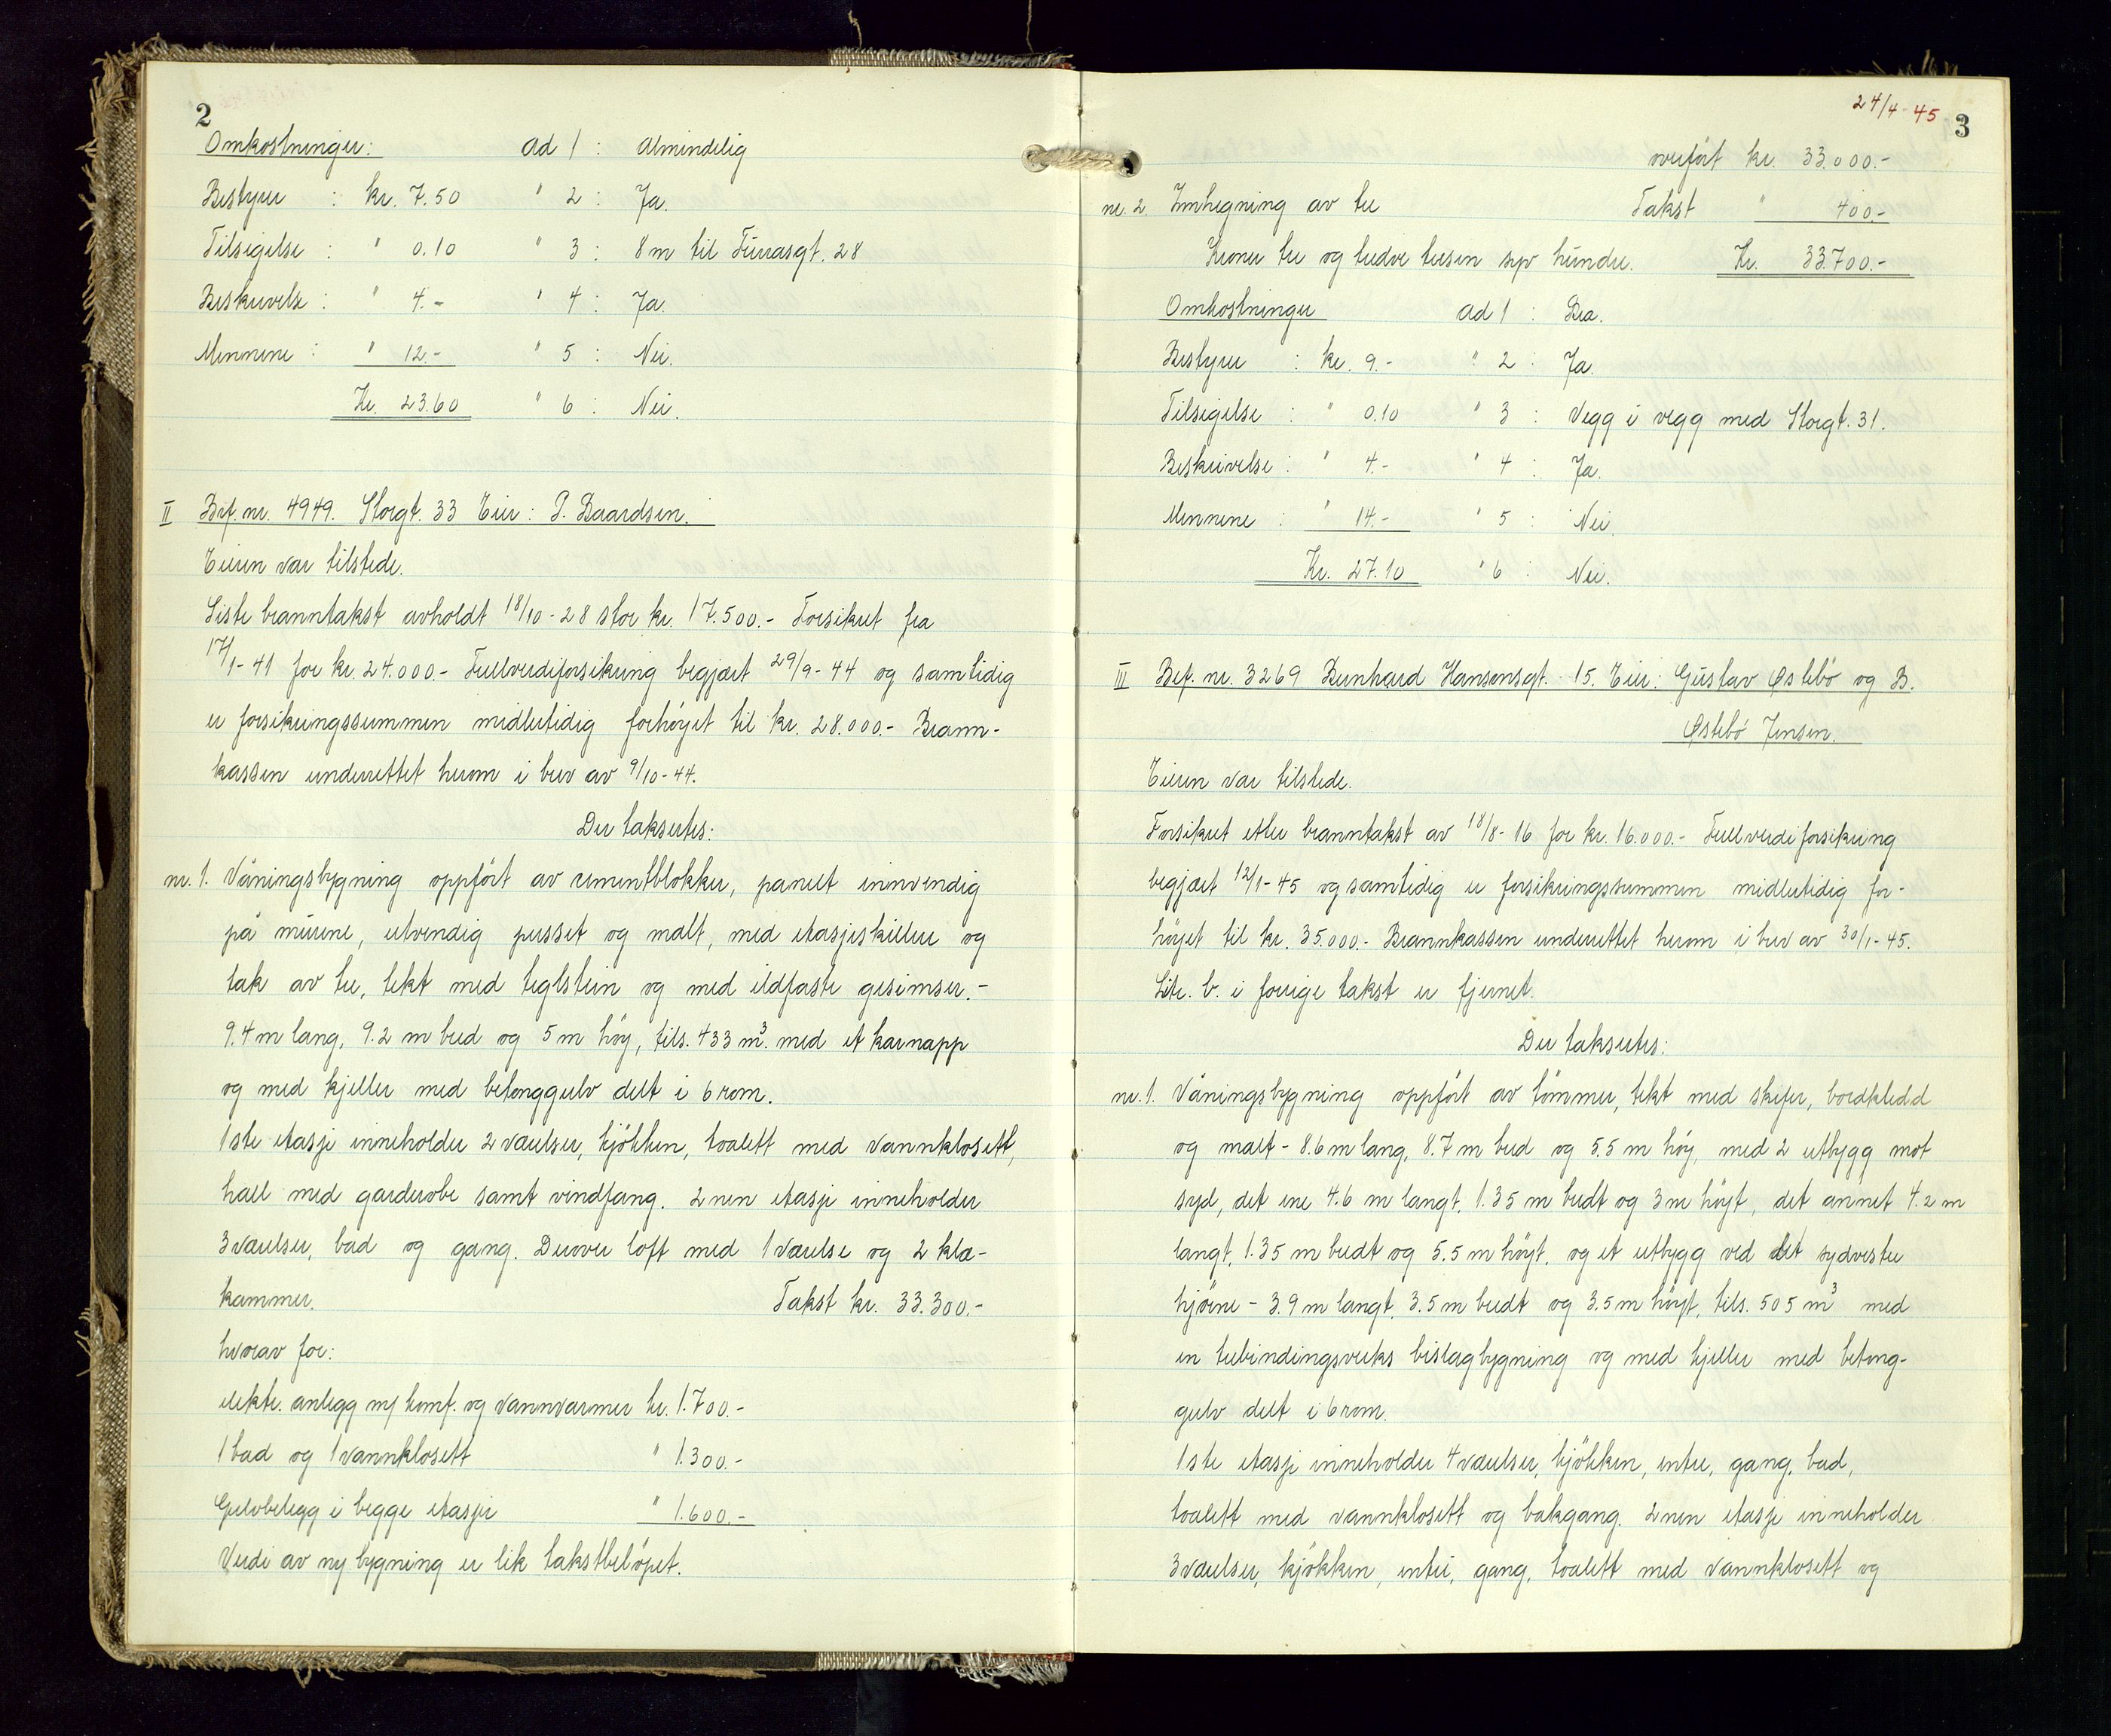 2
Omkostninger: ad 1 : Almindelig
Bestyrer : kr. 7.50 " 2 : Ja.
Tilsigelse : " 0.10 " 3 : 8 m til Furrasgt. 28
Beskrivelse : " 4.- " 4 : Ja.
Mennene : " 12.- " 5 : Nei.
Kr. 23.60 " 6 : Nei.
II Bef. nr. 4949. Storgt. 33 Eier: P. Baardsen.
Eieren var tilstede.
Siste branntakst avholdt 18/10-28 stor kr. 17.500.- Forsikret fra
17/1-41 for kr. 24.000.- Fullverdiforsikring begjært 29/9-44 og samtidig
er forsikringssummen midlertidig forhöyet til kr. 28.000.- Brann-
kassen underrettet herom i brev av 9/10-44.
Der takseres:
nr. 1. Våningsbygning oppfört av cementblokker, panelt innvendig
på murene, utvendig pusset og malt, med etasjeskiller og
tak av tre, tekt med teglstein og med ildfaste gesimser.-
9.4 m lang, 9.2 m bred og 5 m höy, tils. 433 m³. med et karnapp
og med kjeller med betonggulv delt i 6 rom.
1ste etasje inneholder 2 værelser, kjökken, toalett med vannklosett,
hall med garderobe samt vindfang. 2nen etasje inneholder
3 værelser, bad og gang. Derover loft med 1 værelse og 2 klæ-
kammer. Takst kr. 33.300.-
hvorav for:
elektr. anlegg m/ komf. og vannvarmer kr. 1.700.-
1 bad og 1 vannklosett " 1.300.-
Gulvbelegg i begge etasjer " 1.600.-
Verdi av ny bygning er lik takstbelöpet.
24/4-45
3
overfört kr. 33.000.-
nr. 2. Innhegning av tre Takst " 400.-
Kroner tre og tredve tusen syv hundre. Kr. 33.700.-
Omkostninger ad 1 : Bra.
Bestyrer : kr. 9.- " 2 : Ja.
Tilsigelse : " 0.10 " 3 : Vegg i vegg med Storgt. 31.
Beskrivelse : " 4.- " 4 : Ja.
Mennene : " 14.- " 5 : Nei.
Kr. 27.10 " 6 : Nei.
III Bef. nr. 3269 Bernhard Hansensgt. 15. Eier: Gustav Østebö og B.
Østebö Jensen.
Eieren var tilstede.
Forsikret etter branntakst av 18/8-16 for kr. 16.000.- Fullverdiforsikring
begjært 12/1-45 og samtidig er forsikringssummen midlertidig for-
höyet til kr. 35.000.- Brannkassen underrettet herom i brev av 30/1-45.
Litr. b. i forrige takst er fjernet.
Der takseres:
nr. 1. Våningsbygning oppfört av tömmer, tekt med skifer, bordkledd
og malt - 8.6 m lang, 8.7 m bred og 5.5 m höy, med 2 utbygg mot
syd, det ene 4.6 m langt, 1.35 m bredt og 3 m höyt, det annet 4.2 m
langt, 1.35 m bredt og 5.5 m höyt, og et utbygg ved det sydvestre
hjörne - 3.9 m langt, 3.5 m bredt og 3.5 m höyt, tils. 505 m³ med
en trebindingsverks bislagbygning og med kjeller med betong-
gulv delt i 6 rom.
1ste etasje inneholder 4 værelser, kjökken, entre, gang, bad,
toalett med vannklosett og bakgang. 2nen etasje inneholder
3 værelser, kjökken, entré, gang, toalett med vannklosett og